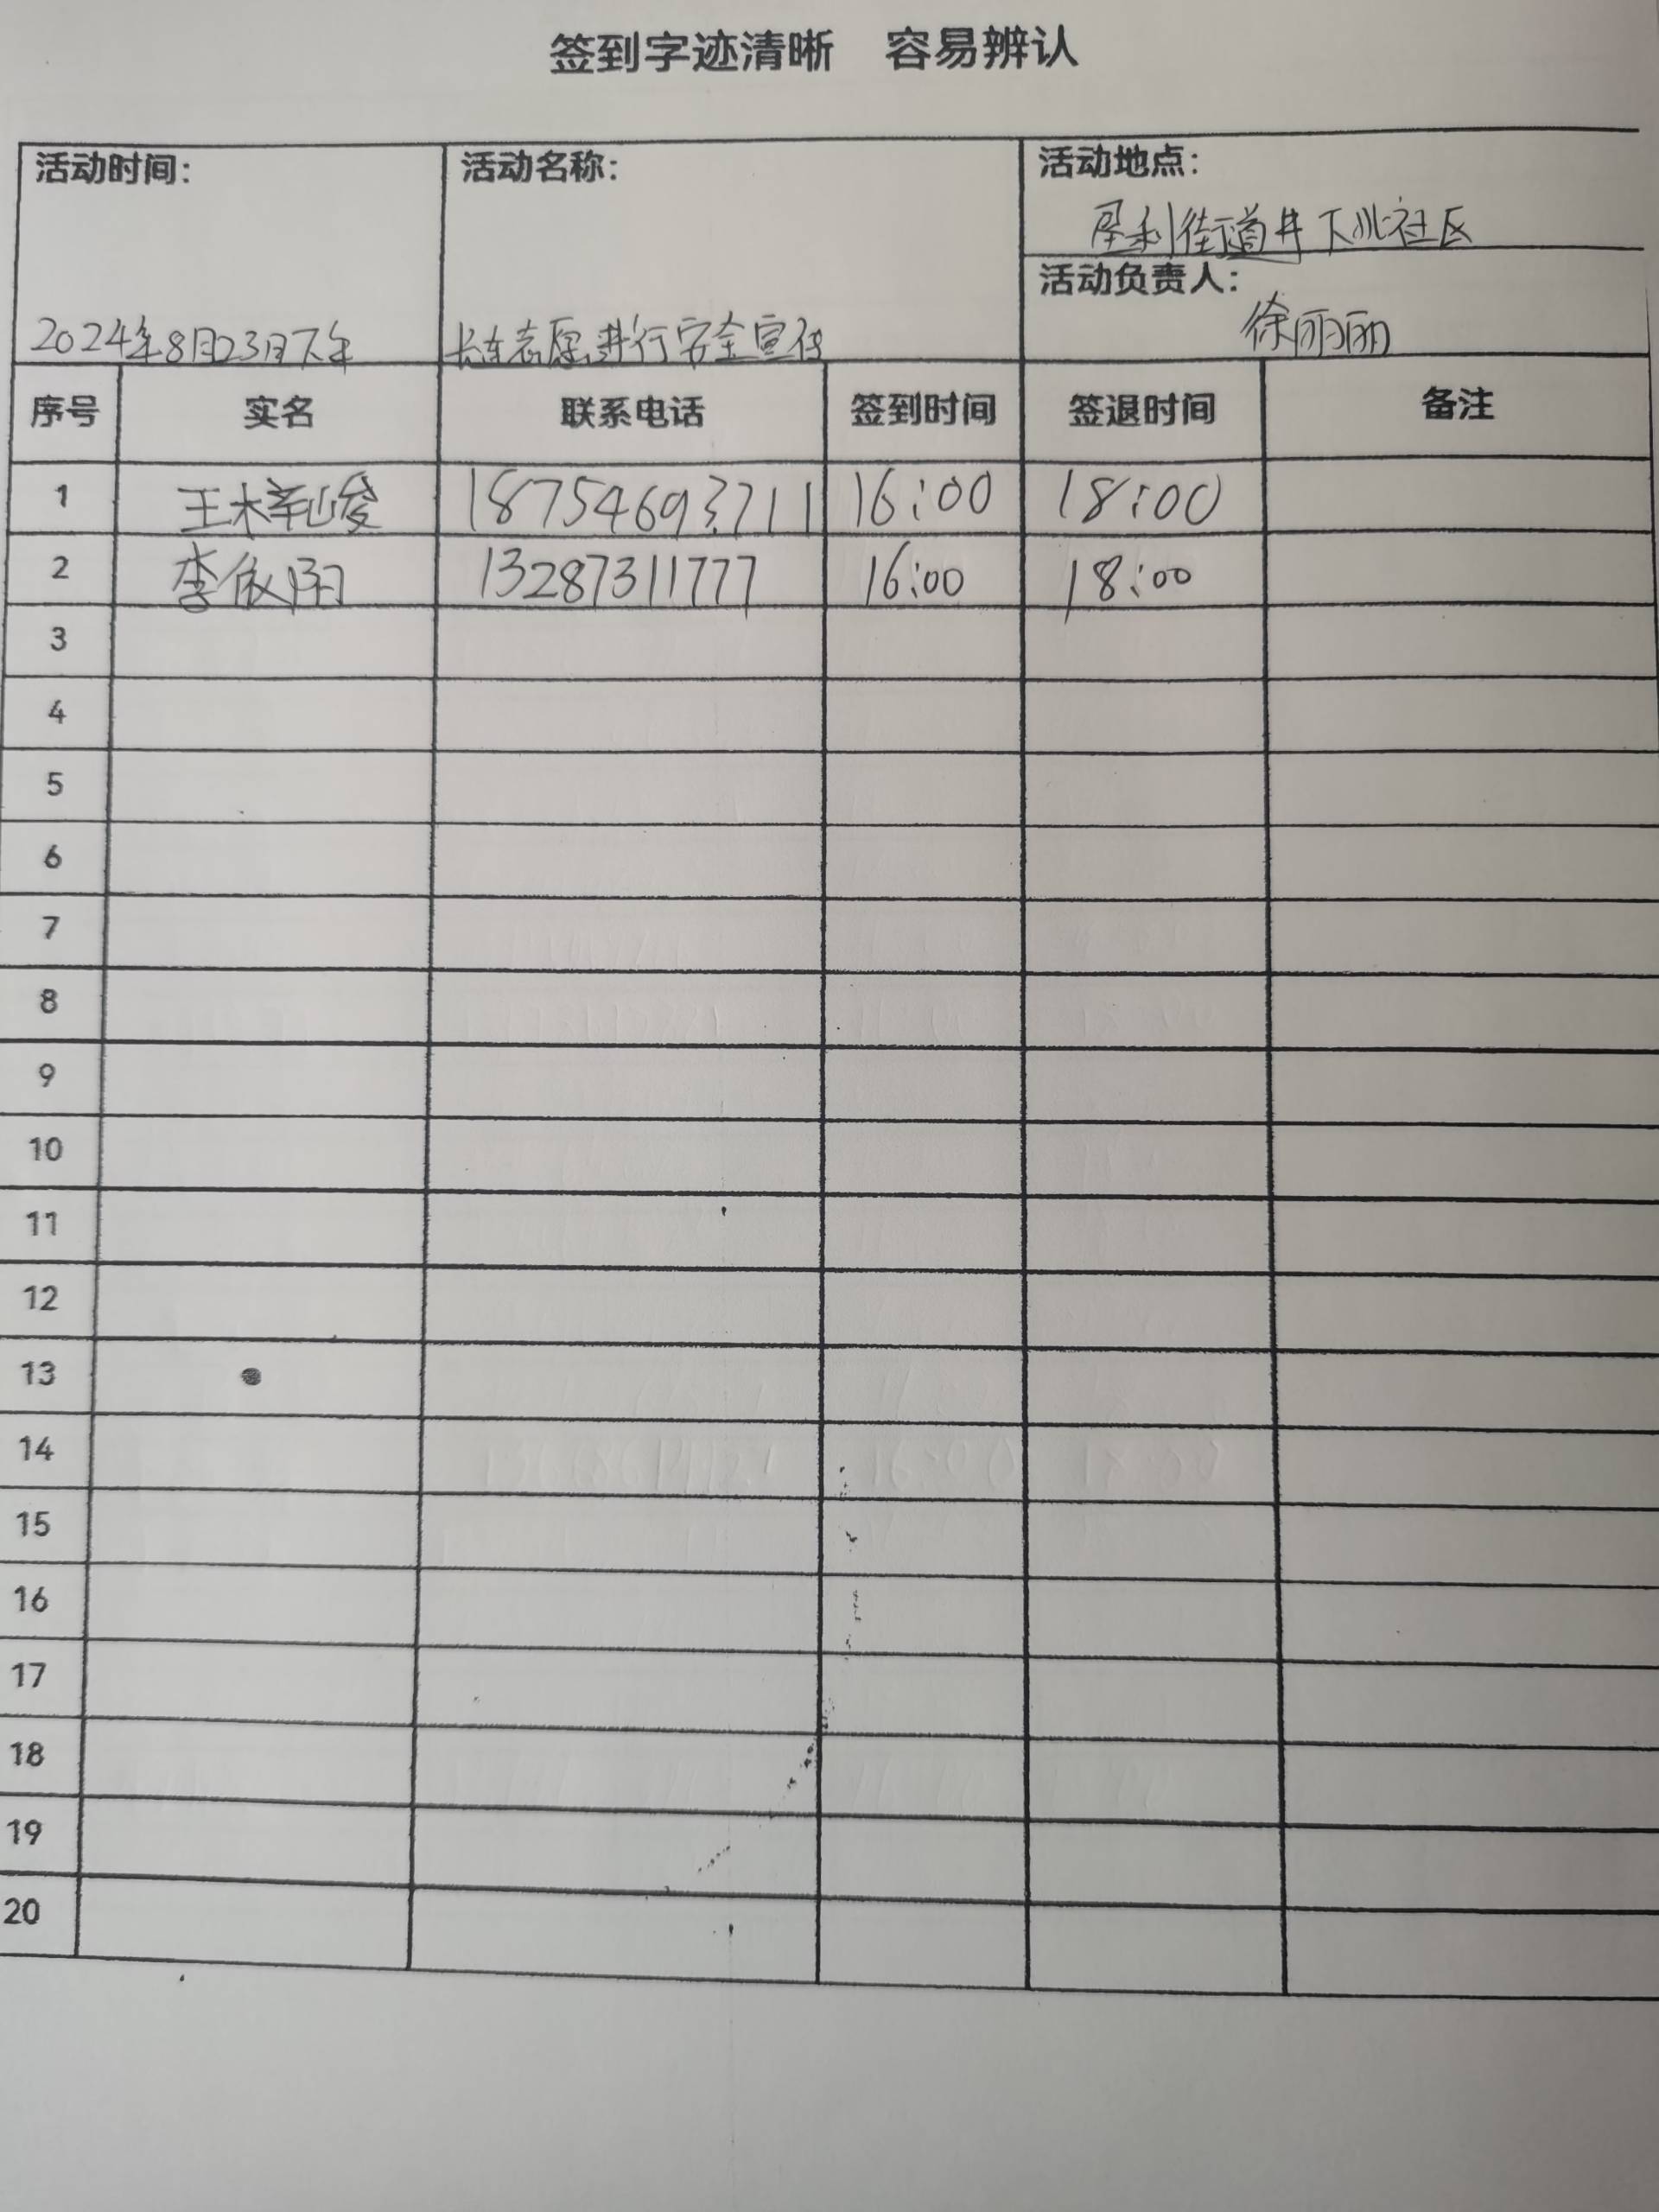 签到字迹清晰 容易辨认
活动时间： 活动名称： 活动地点：
垦利街道井下北社区
活动负责人：
徐丽丽
2024年8月23日下午 志愿进行安全宣传
序号 实名 联系电话 签到时间 签退时间 备注
1 王梓峻 18754693711 16:00 18:00
2 李依阳 13287311777 16:00 18:00
3
4
5
6
7
8
9
10
11
12
13
14
15
16
17
18
19
20